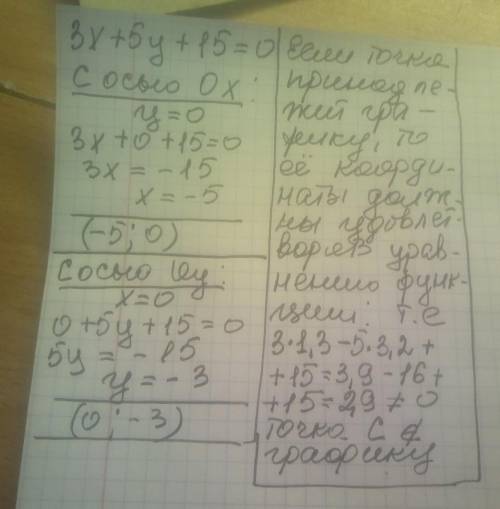 3x+5y+15=0
С осью Ox:
y=0
3x+0+15=0
3x=-15
x=-5
(-5; 0)
С осью Oy:
x=0
0+5y+15=0
5y=-15
y=-3
(0; -3)
Если точка
принадле-
жит гра-
фику, то
её коорди-
наты долж-
ны удовлет-
ворять урав-
нению функ-
ции: т.е
3·1,3-5·3,2+
+15=3,9-16+
+15=2,9≠0
Точка C ∉
графику